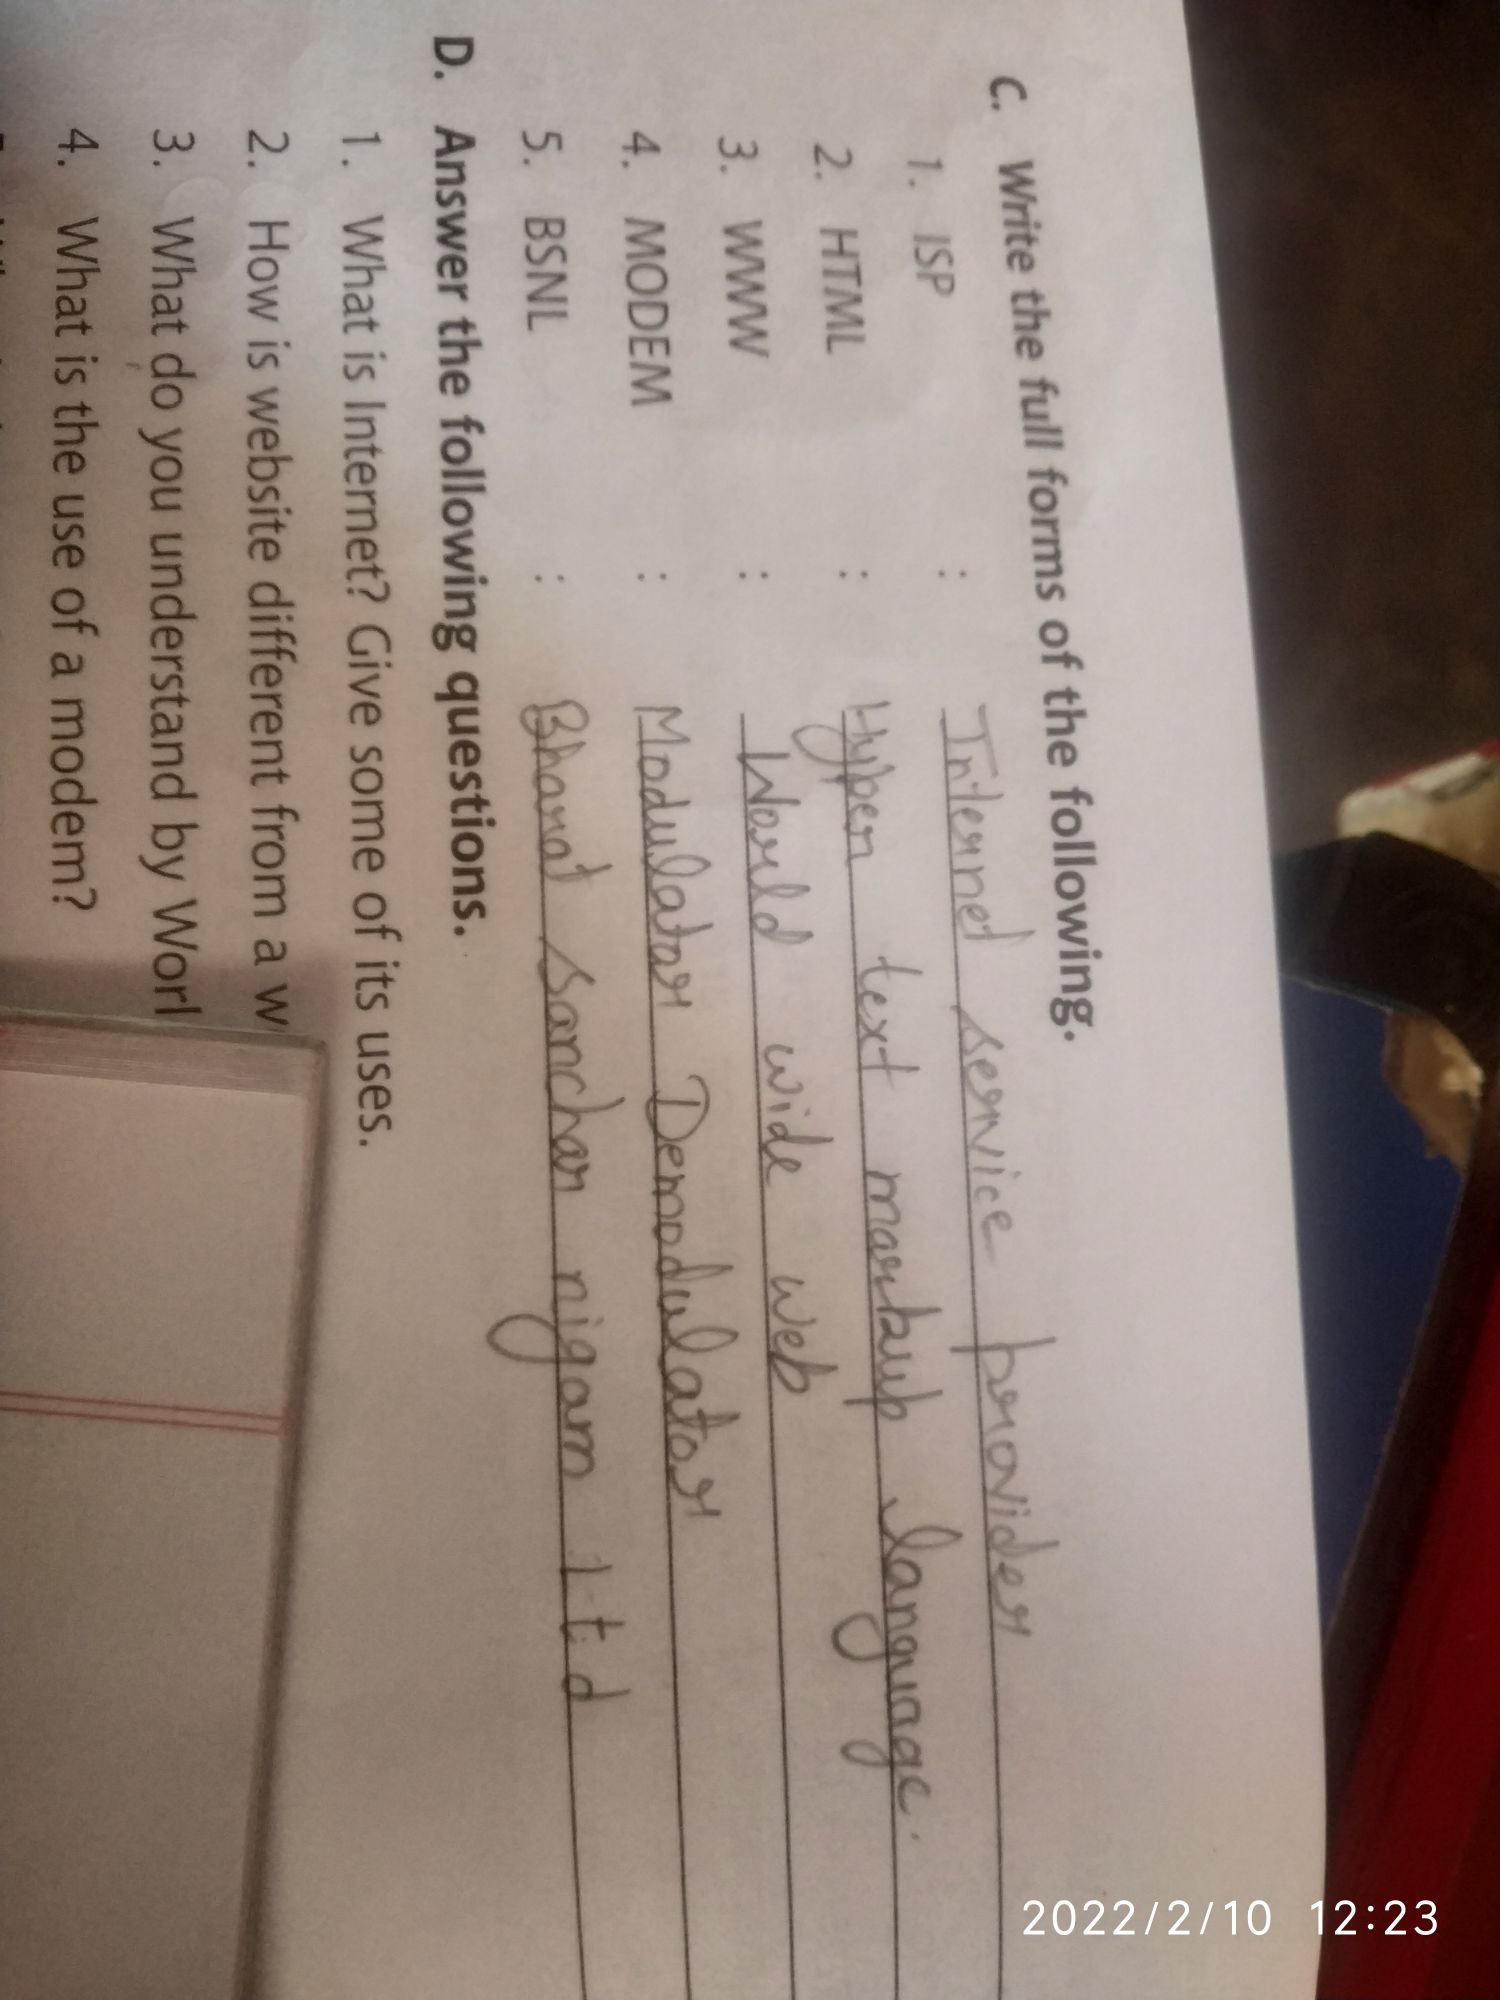 C. Write the full forms of the following.
1. ISP : Internet service provider
2. HTML : Hyper text markup language.
3. WWW : World wide web
4. MODEM : Modulator Demodulator
5. BSNL : Bharat sanchar nigam ltd
D. Answer the following questions.
1. What is Internet? Give some of its uses.
2. How is website different from a w
3. What do you understand by Worl
4. What is the use of a modem?
2022/2/10 12:23